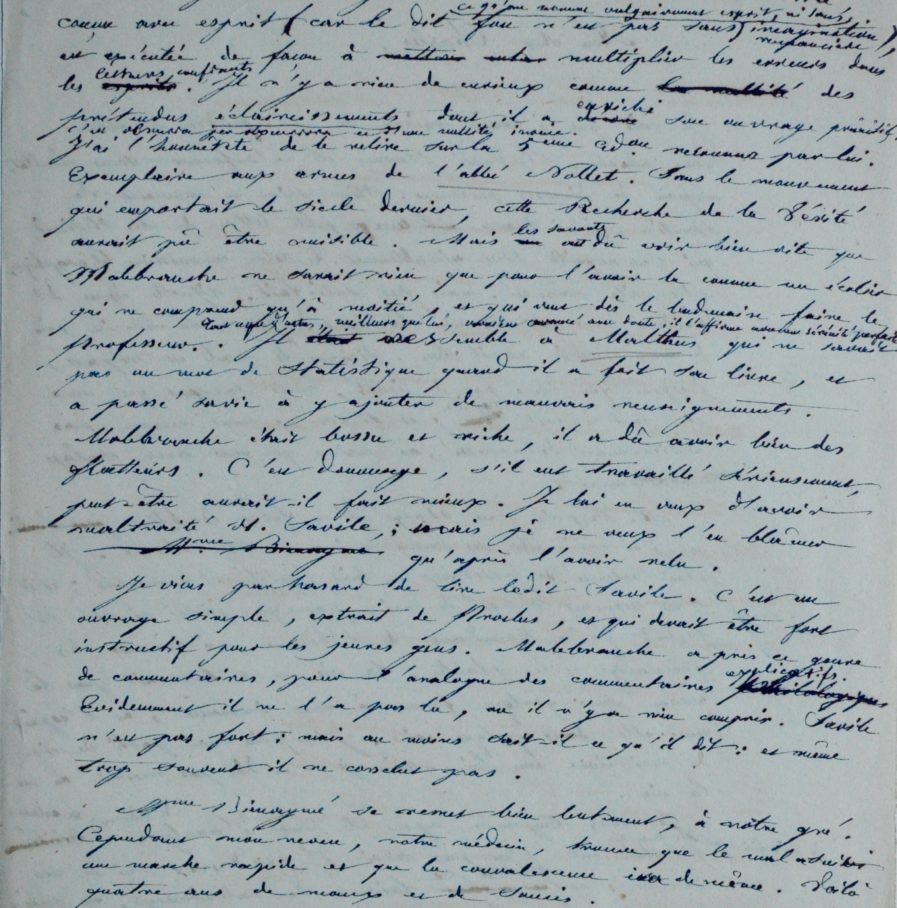 ce qu'on nomme vulgairement esprit, ni sans
comme avec esprit (car le dit fou n'est pas sans imagination),
romancière
est exécutée de façon à multiplier les erreurs dans
lecteurs confiants
les esprits. Il n'y a rien de curieux comme la nullité des
enrichi
prétendus éclaircissements dont il a son ouvrage primitif.
c'est obscura per obscuriora et d'une nullité inouïe.
J'ai l'honnêteté de le relire sur la 5ème édon reconnue par lui.
Exemplaire aux armes de l'abbé Nollet. Dans le mouvement
qui emportait le siècle dernier, cette Recherche de la Vérité
les savants
aurait pû être nuisible. Mais ont dû voir bien vite que
Malebranche ne savait rien que pour l'avoir lu comme un écolier
qui ne comprend qu'à moitié, et qui veut dès le lendemain faire le
meilleurs que lui, sans doute, il l'affirme avec une sérénité parfaite
Professeur. Il ressemble à Malthus qui ne savait
pas un mot de statistique quand il a fait son livre, et
a passé sa vie à y ajouter de mauvais renseignements.
Malebranche était bossu et riche, il a dû avoir bien des
flatteurs. C'est dommage, s'il eut travaillé sérieusement,
peut-être aurait-il fait mieux. Je lui en veux d'avoir
maltraité H. Savile, ; mais je ne veux l'en blâmer
Mme Bienaymé qu'après l'avoir relu.
Je viens par hasard de lire ledit Savile. C'est un
ouvrage simple, extrait de Proclus, et qui devait être fort
instructif pour les jeunes gens. Malebranche a pris ce genre
explicatifs.
de commentaires, pour l'analogue des commentaires philologiques
Evidemment il ne l'a pas lu, ou il n'y a rien compris. Savile
n'est pas fort ; mais au moins sait-il ce qu'il dit : et même
trop souvent il ne conclut pas.
Mme Bienaymé se remet bien lentement, à notre gré.
Cependant mon neveu, notre médecin, trouve que le mal a suivi
une marche rapide et que la convalescence ira de même. Voilà
quatre ans de maux et de soucis.